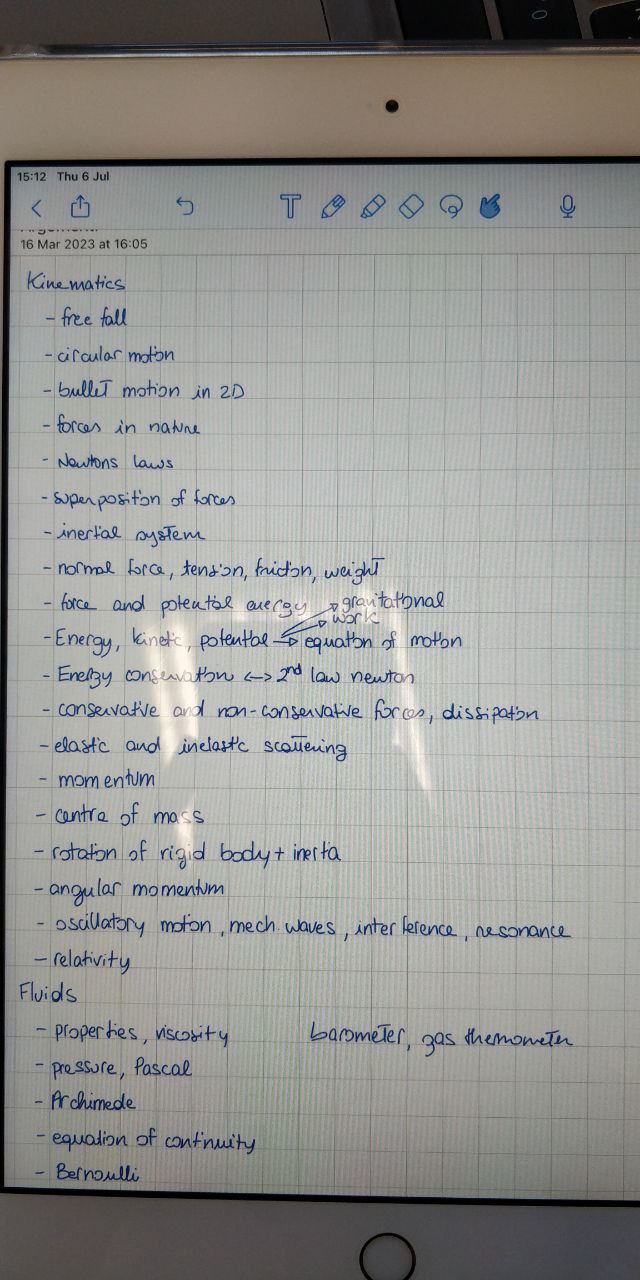 15:12 Thu 6 Jul
16 Mar 2023 at 16:05
Kinematics
- free fall
- circular motion
- bullet motion in 2D
- forces in nature
- Newtons laws
- superposition of forces
- inertial system
- normal force, tension, friction, weight
- force and potential energy
gravitational
work
- Energy, kinetic, potential → equation of motion
- Energy conservation <-> 2nd law newton
- conservative and non-conservative forces, dissipation
- elastic and inelastic scattering
- momentum
- centre of mass
- rotation of rigid body + inertia
- angular momentum
- oscillatory motion, mech. waves, interference, resonance
- relativity
Fluids
- properties, viscosity barometer, gas themometer
- pressure, Pascal
- Archimede
- equation of continuity
- Bernoulli